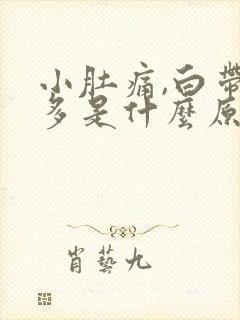 小肚痛,白帶
多是什麼原
肖藝九